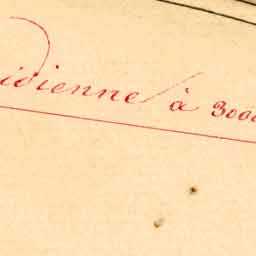 idienne à 3000